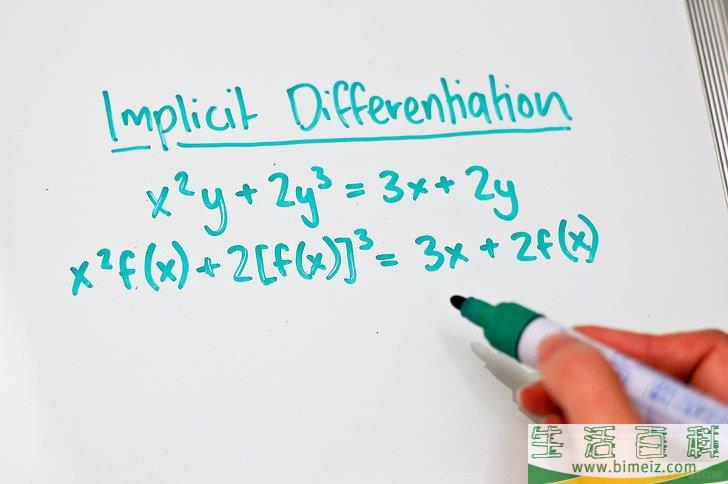 Implicit Differentiation
x²y + 2y³ = 3x + 2y
x²f(x) + 2[f(x)]³ = 3x + 2f(x)
生活百科
www.bimeiz.com